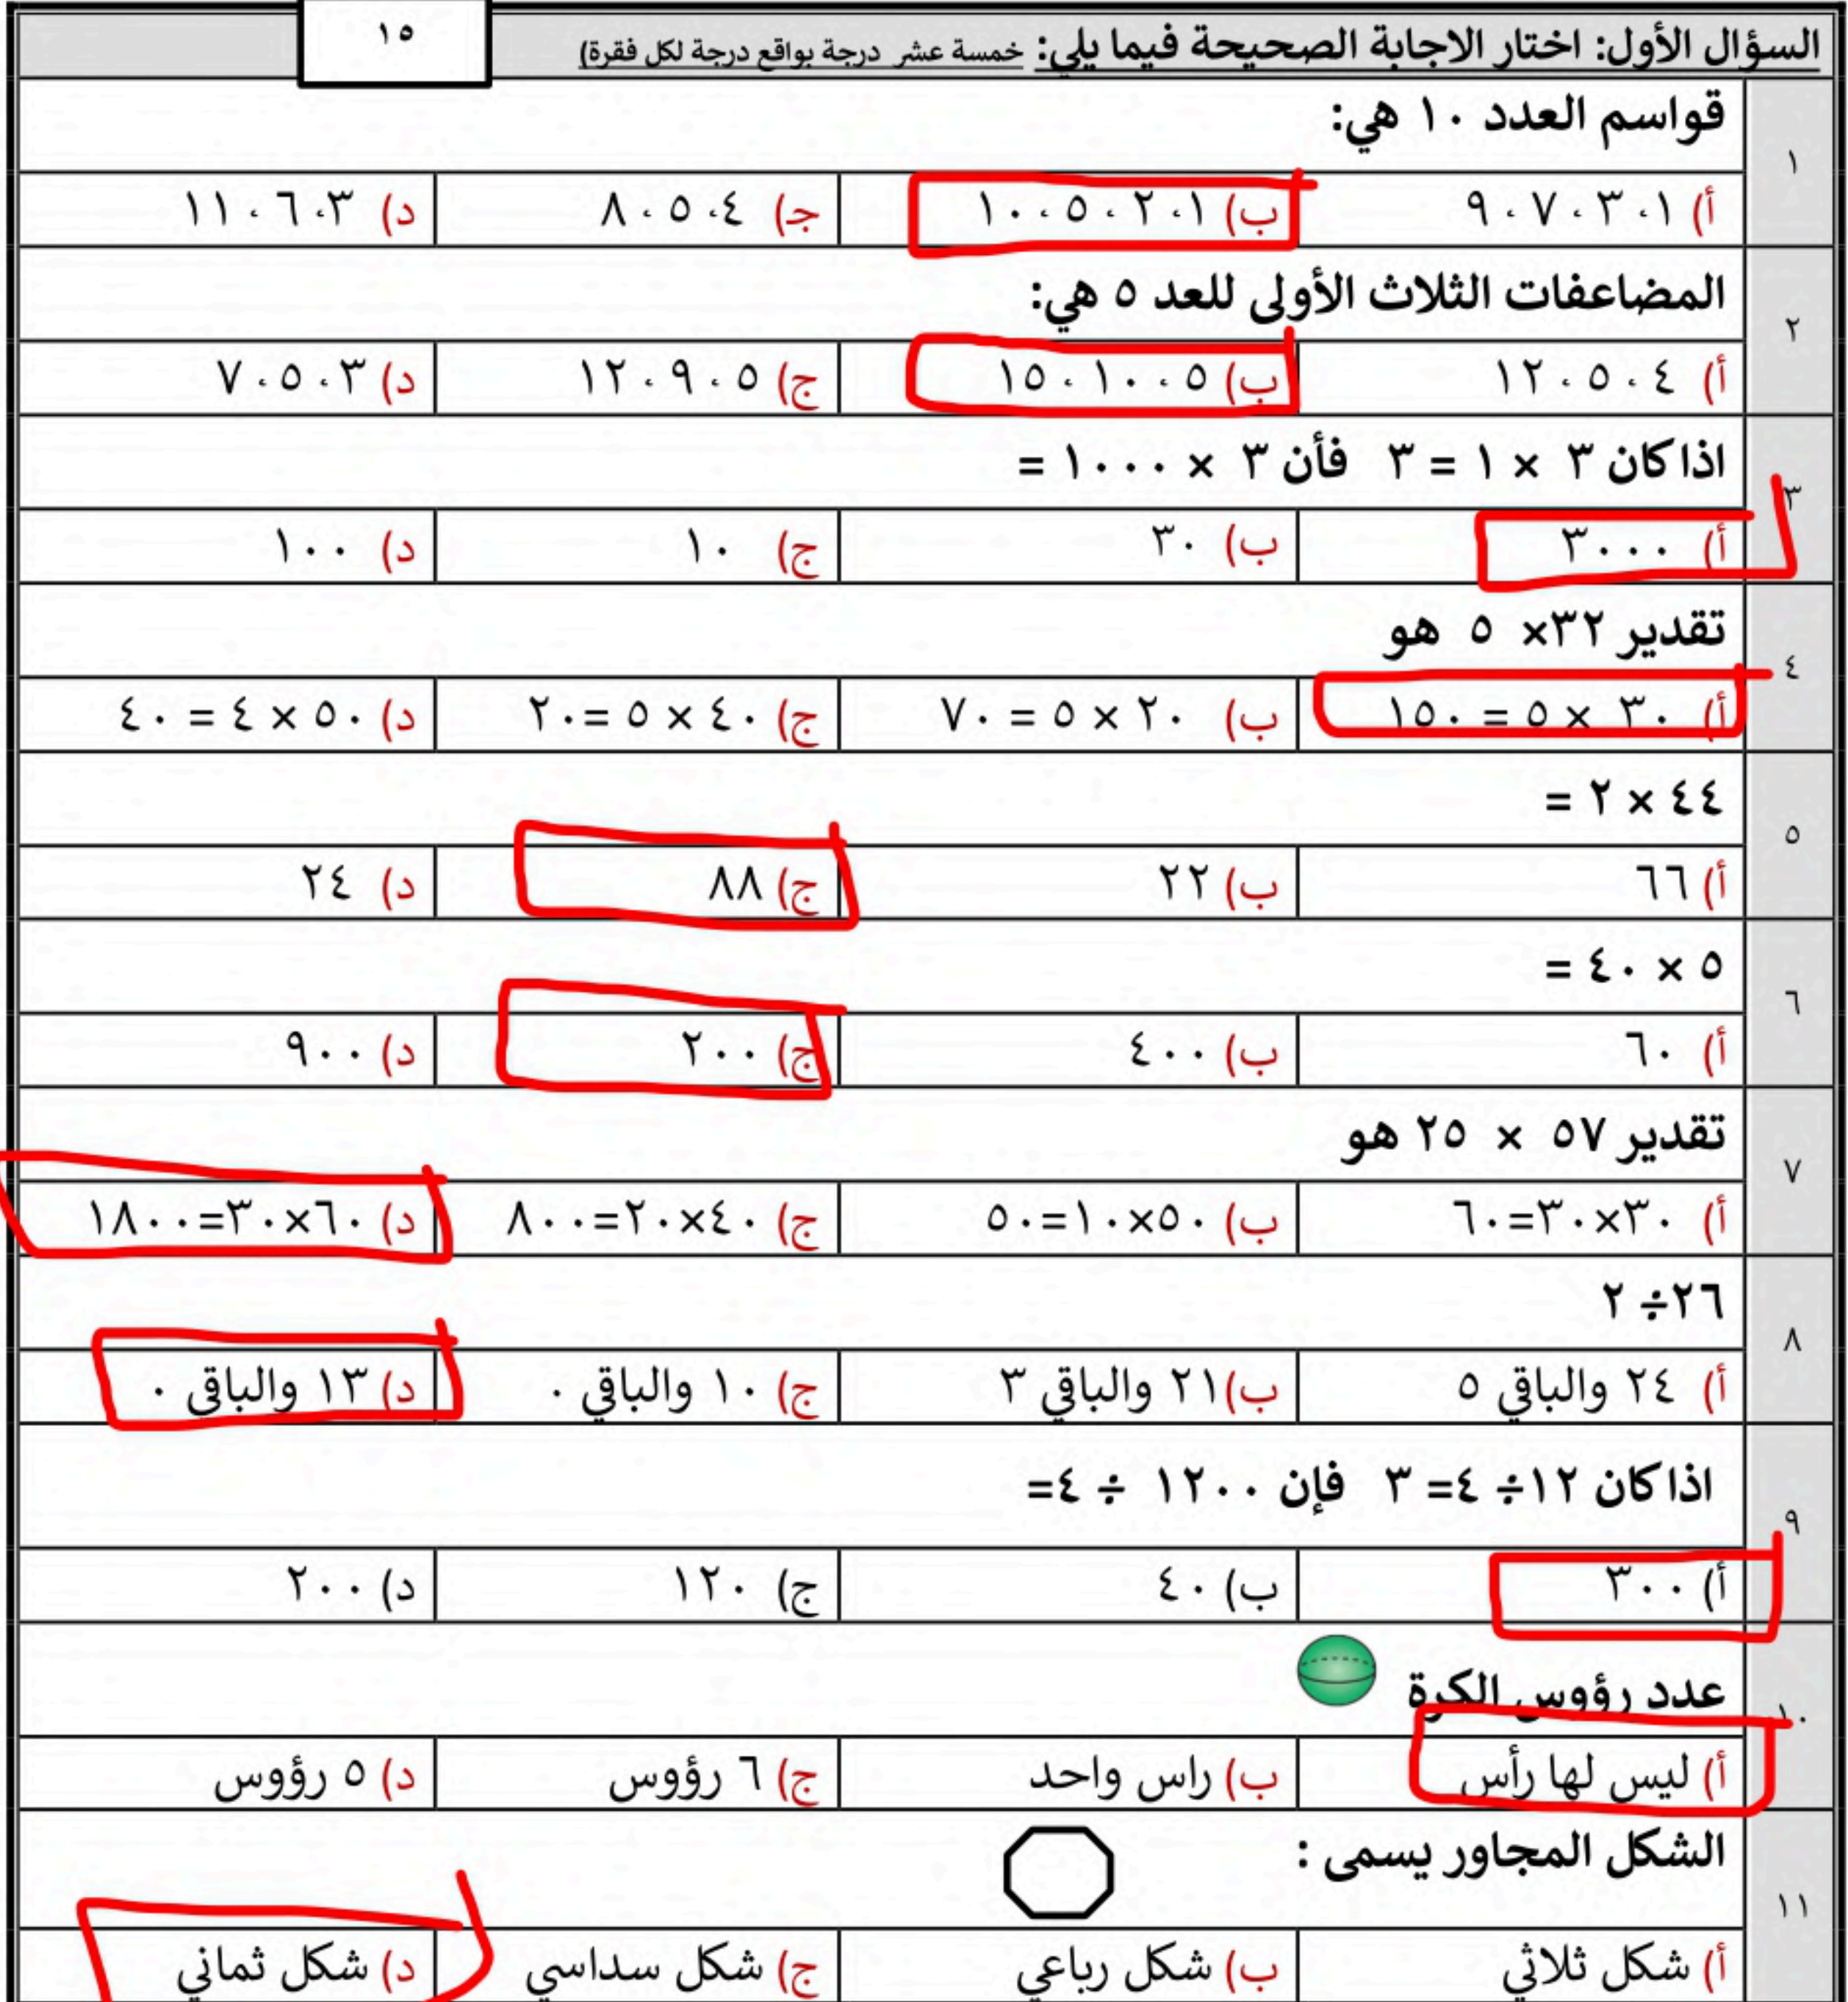 السؤال الأول: اختار الاجابة الصحيحة فيما يلي: خمسة عشر درجة بواقع درجة لكل فقرة)
١٥
١
قواسم العدد ١٠ هي:
أ) ١، ٣، ٧، ٩
ب) ١، ٢، ٥، ١٠
جـ) ٤، ٥، ٨
د) ٣، ٦، ١١
٢
المضاعفات الثلاث الأولى للعد ٥ هي:
أ) ٤، ٥، ١٢
ب) ٥، ١٠، ١٥
ج) ٥، ٩، ١٢
د) ٣، ٥، ٧
٣
اذا كان ٣ × ١ = ٣ فأن ٣ × ١٠٠٠ =
أ) ٣٠٠٠
ب) ٣٠
ج) ١٠
د) ١٠٠
٤
تقدير ٣٢× ٥ هو
أ) ٣٠ × ٥ = ١٥٠
ب) ٢٠ × ٥ = ٧٠
ج) ٤٠ × ٥ =٢٠
د) ٥٠ × ٤ = ٤٠
٥
٤٤ × ٢ =
أ) ٦٦
ب) ٢٢
ج) ٨٨
د) ٢٤
٦
٥ × ٤٠ =
أ) ٦٠
ب) ٤٠٠
ج) ٢٠٠
د) ٩٠٠
٧
تقدير ٥٧ × ٢٥ هو
أ) ٣٠×٣٠=٦٠
ب) ٥٠×١٠=٥٠
ج) ٤٠×٢٠=٨٠٠
د) ٦٠×٣٠=١٨٠٠
٨
٢٦÷ ٢
أ) ٢٤ والباقي ٥
ب) ٢١ والباقي ٣
ج) ١٠ والباقي ٠
د) ١٣ والباقي ٠
٩
اذا كان ١٢÷ ٤= ٣ فإن ١٢٠٠ ÷ ٤=
أ) ٣٠٠
ب) ٤٠
ج) ١٢٠
د) ٢٠٠
١٠
عدد رؤوس الكرة
أ) ليس لها رأس
ب) راس واحد
ج) ٦ رؤوس
د) ٥ رؤوس
١١
الشكل المجاور يسمى :
أ) شكل ثلاثي
ب) شكل رباعي
ج) شكل سداسي
د) شكل ثماني